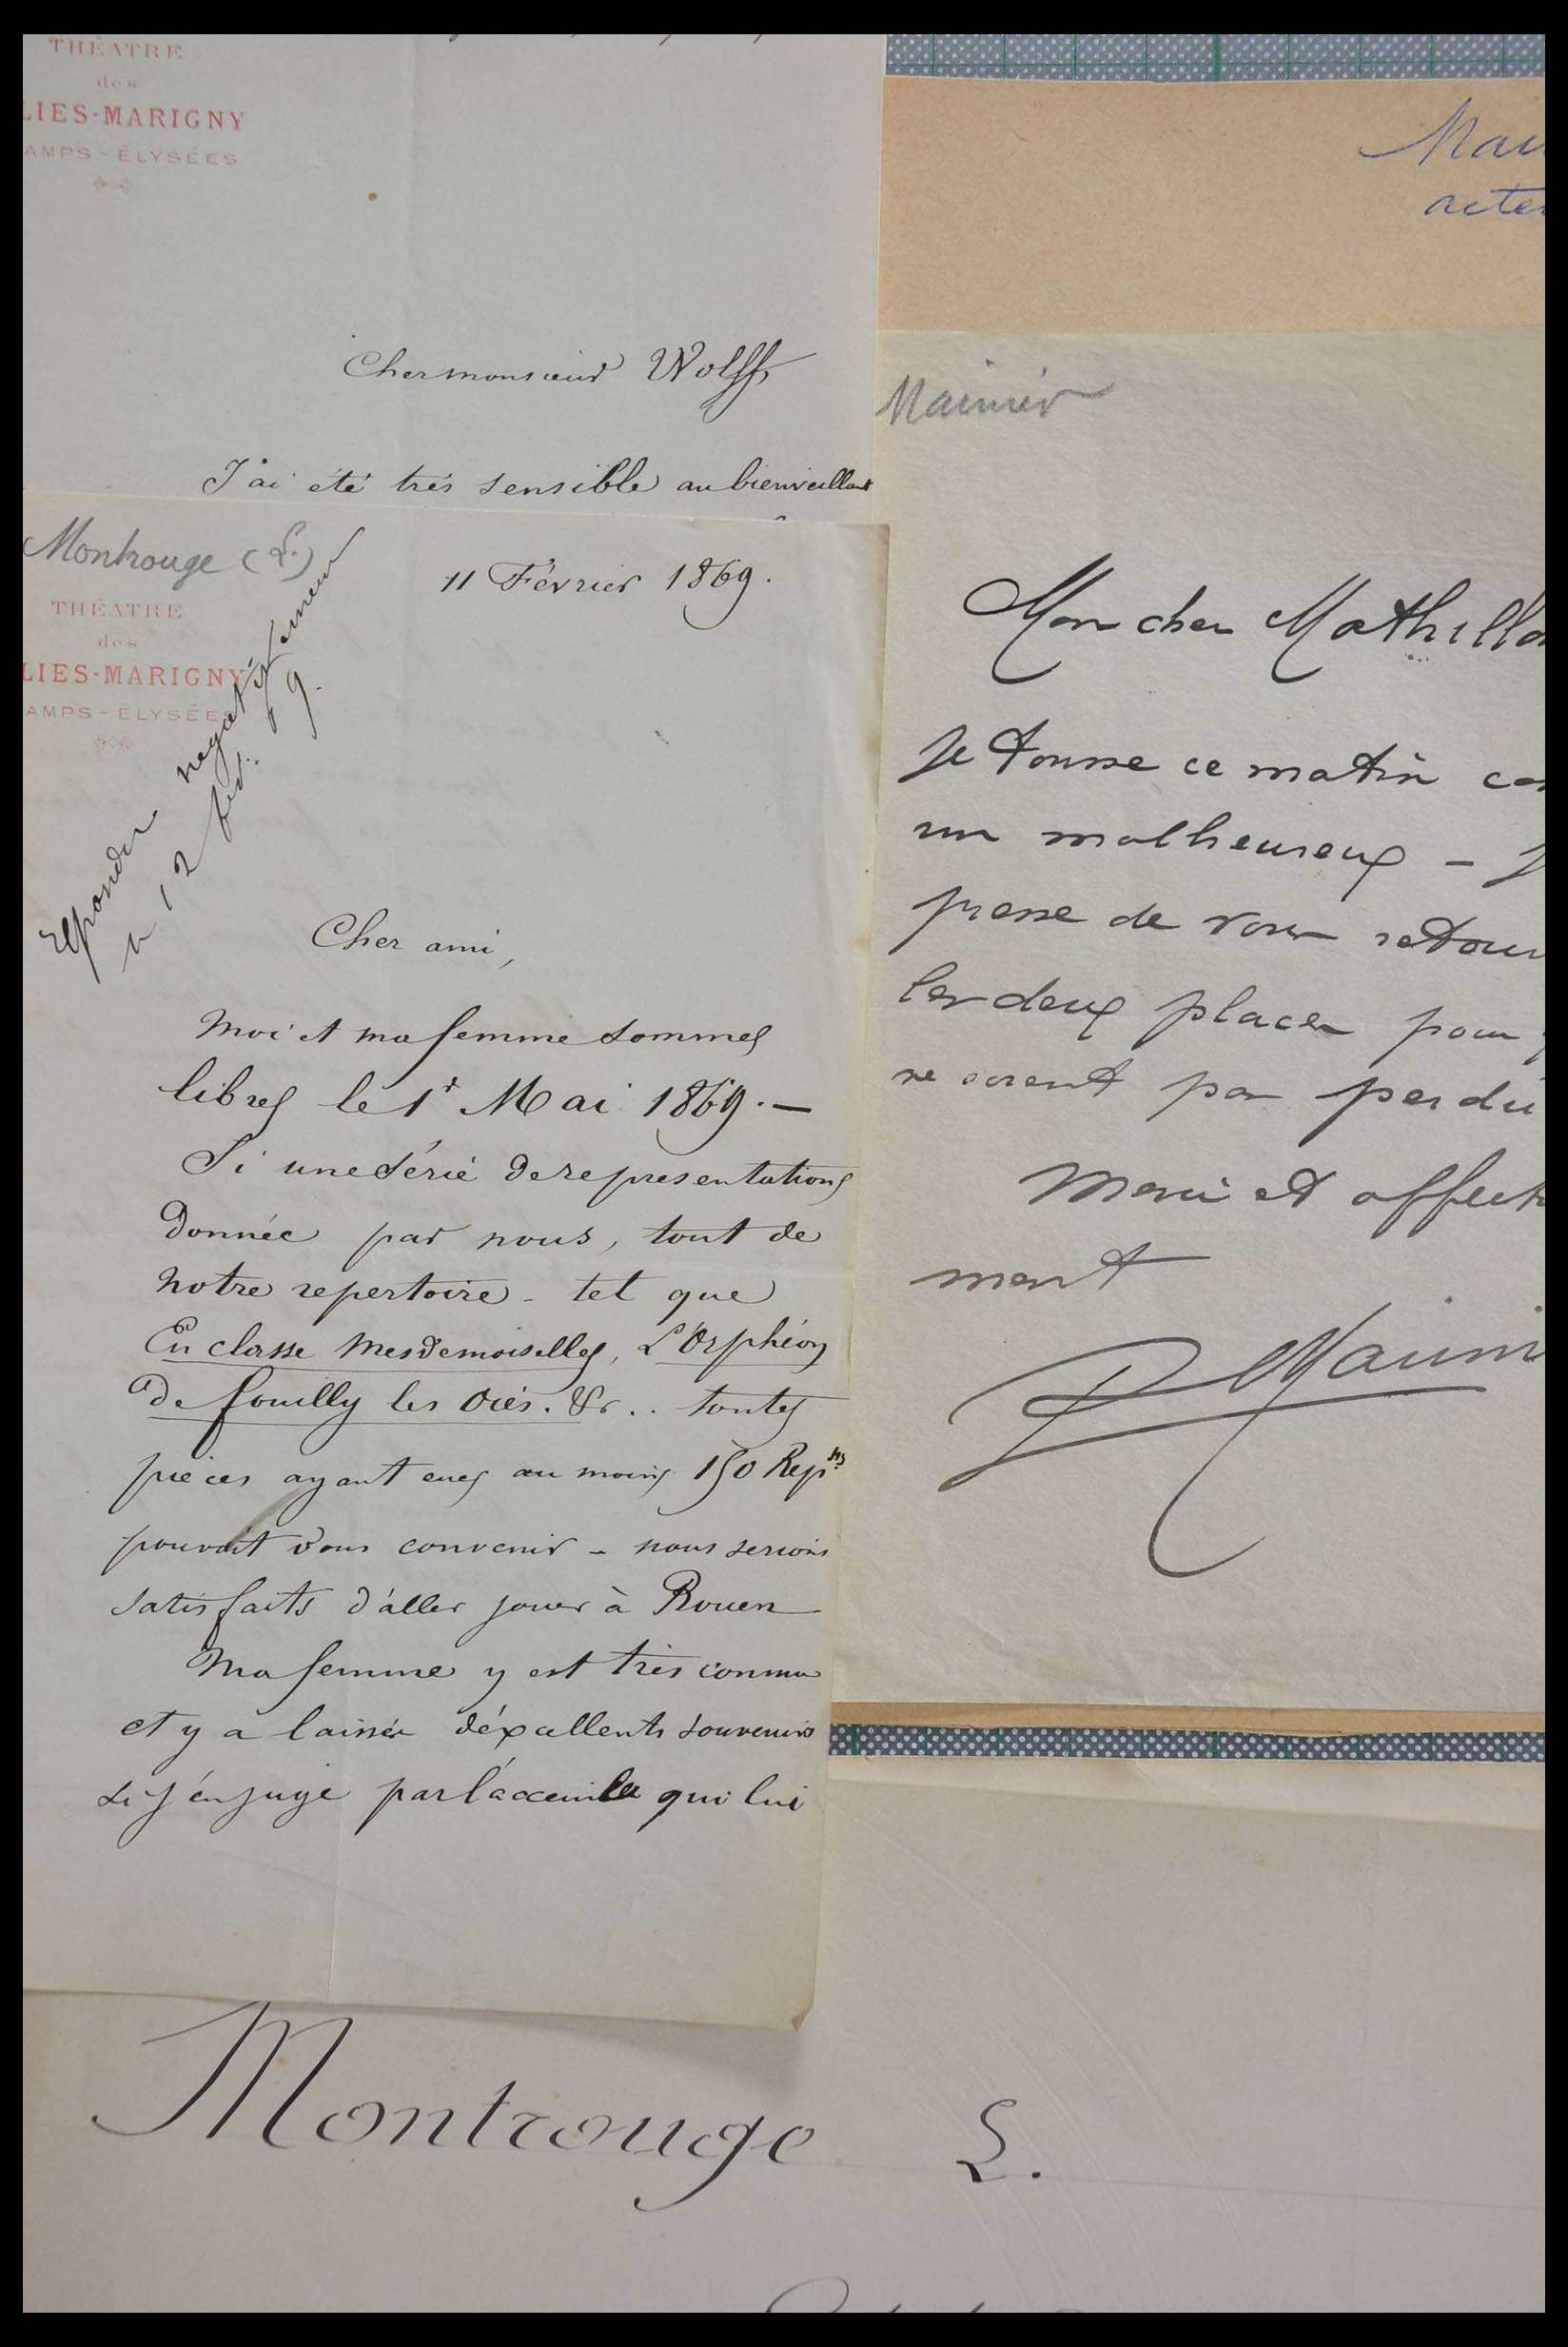 THÉATRE
des
LIES-MARIGNY
AMPS-ÉLYSÉES
Cher monsieur Wolff,
J'ai été très sensible au bienveillant
Montrouge (L.)
11 Février 1869.
THÉATRE
des
LIES-MARIGNY
AMPS-ÉLYSÉES
Répondu negativement
le 12 fév. 9.
Cher ami,
Moi et ma femme sommes
libres le 1r Mai 1869. —
Si une série de representations
donnée par nous, tout de
notre repertoire - tel que
En classe Mesdemoiselles, L'Orphéon
de fouilly les Oies. &c.. toutes
pièces ayant eues au moins 150 Repns
pouvait vous convenir - nous serions
satisfaits d'aller jouer à Rouen
Ma femme y est très connue
et y a laissée d'excellents souvenirs
si j'en juge par l'acceuil qui lui
Mau
acteu
Maimier
Mon cher Mathillo
Je tousse ce matin com
un malheureux - J
presse de vous retour
les deux places pour
ne soient pas perdu
Merci et affectu
ment
Montrouge L.